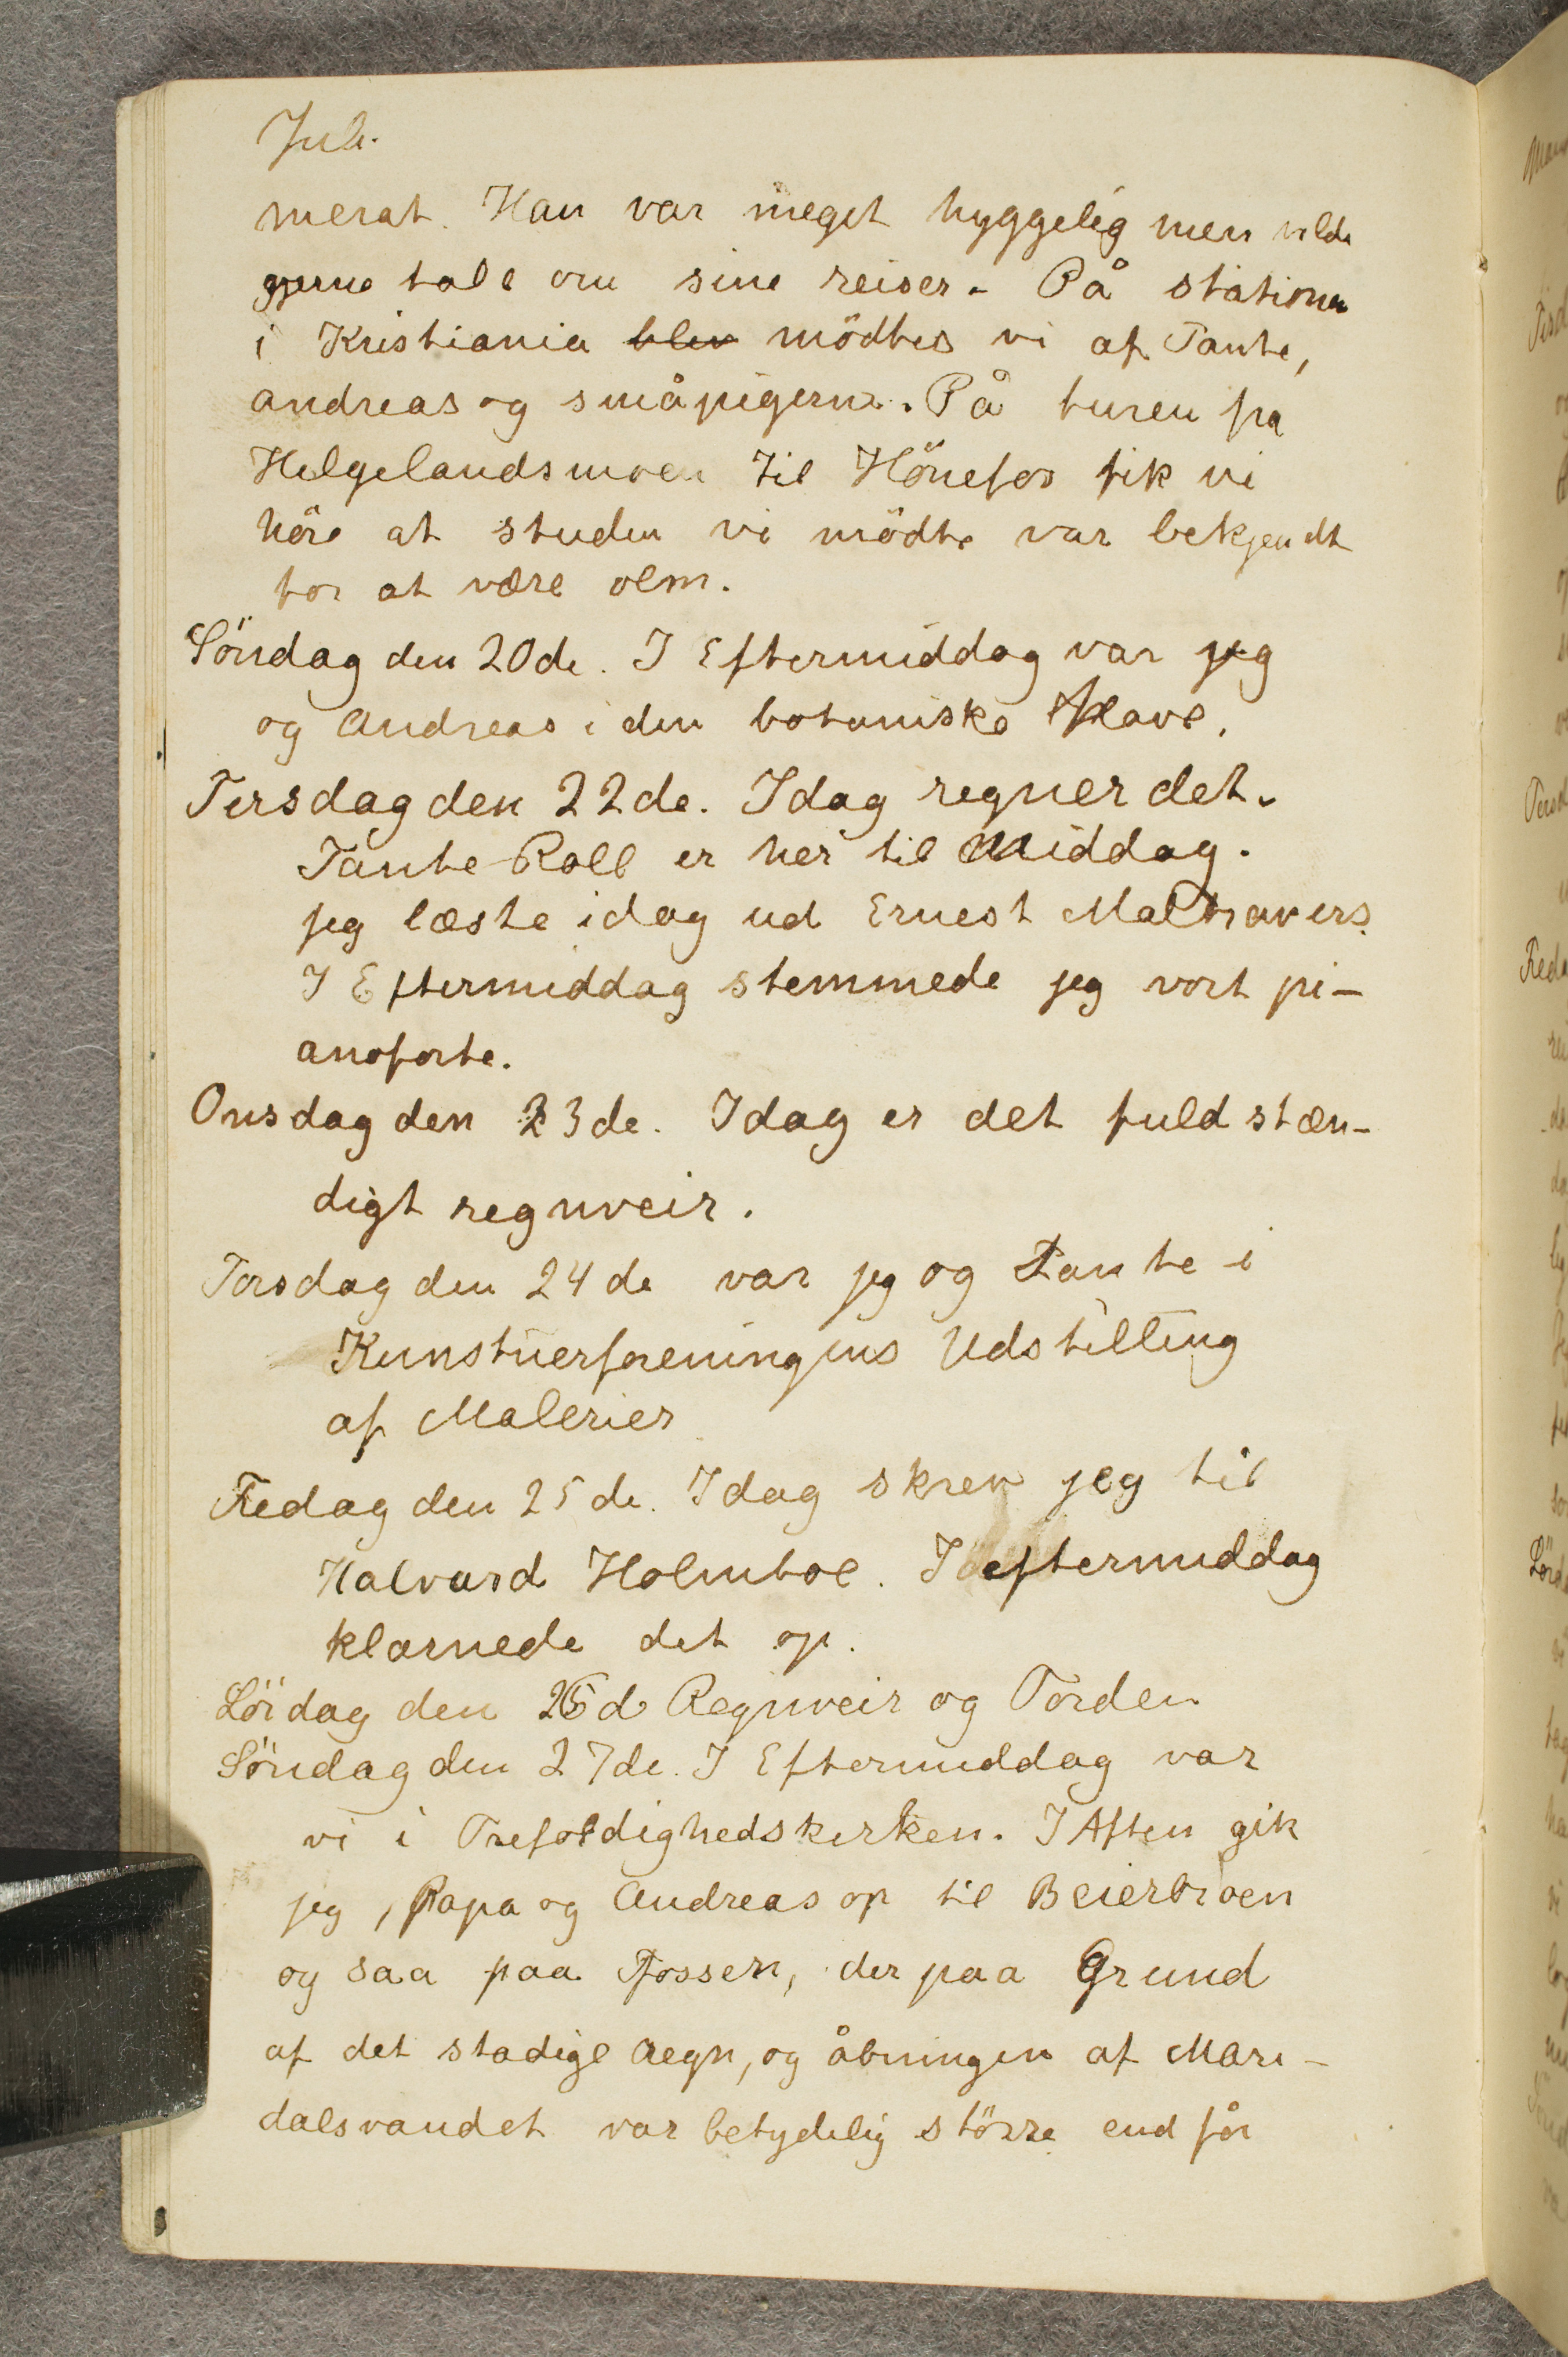 Juli.
merat. Han var meget hyggelig men vilde
gjerne tale om sine reiser. På stationen
i Kristiania blev mödtes vi af Tante,
andreas og småpigerne. På turen fra
Helgelandsmoen til Hönefos fik vi
höre at studen vi mödte var bekjendt
for at være olm.
Söndag den 20de. I Eftermiddag var jeg
og Andreas i den botaniske Have.
Tirsdag den 22de. Idag regner det.
Tante Roll er her til Middag.
jeg læste idag ud Ernest Maltravers.
I Eftermiddag stemmede jeg vort pi-
anoforte.
Onsdag den 23de. Idag er det fuldstæn-
digt regnveir.
Torsdag den 24de var jeg og Tante i
Kunstnerforeningens Udstilling
af Malerier
Fredag den 25de. Idag skrev jeg til
Halvard Holmboe. I eftermiddag
klarnede det op.
Lördag den 26d Regnveir og Torden
Söndag den 27de. I Eftermiddag var
vi i Trefoldighedskirken. I Aften gik
jeg, Papa og Andreas op til Beierbroen
og saa paa Fossen, der paa Grund
af det stadige Regn, og åbningen af Mari-
dalsvandet var betydelig större end för